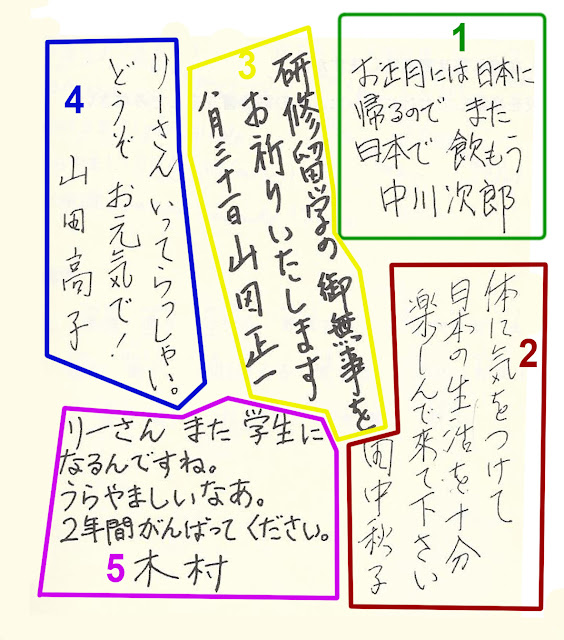 1
お正月には日本に
帰るので また
日本で 飲もう
中川次郎
2
体に気をつけて
日本の生活を十分
楽しんで来て下さい
田中秋子
3
研修留学の御無事を
お祈りいたします
八月三十一日 山田正一
4
りーさん いってらっしゃい。
どうぞ お元気で!
山田高子
5
りーさん また 学生に
なるんですね。
うらやましいなあ。
2年間がんばってください。
木村